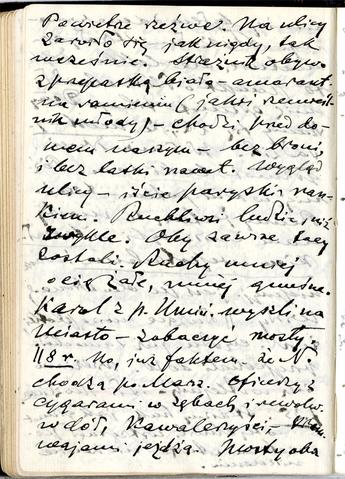 Powietrze rzeźwe. Na ulicy
zaroiło się jak nigdy, tak
wcześnie. Strażnik obyw.
z przepaską biało-amarant.
na ramieniu (jakiś rzemieśl-
nik młody) – chodzi przed do-
mem naszym – bez broni,
i bez laski nawet. Wygląd
ulicy – iście paryski ran-
kiem. Ruchliwsi ludzie, niż
zwykle. Oby zawsze tacy
zostali. Ruchy mniej
ociężałe, mniej gnuśne.
Karol z p. Umiń. wyszli na
miasto – zobaczyć mosty.
118 r. No, już faktem. że N
chodzą po Marsz. oficerzy z
cygarami w zębach i rewolw.
w dół, Kawalerzyści –
jeżdżą. Mosty oba